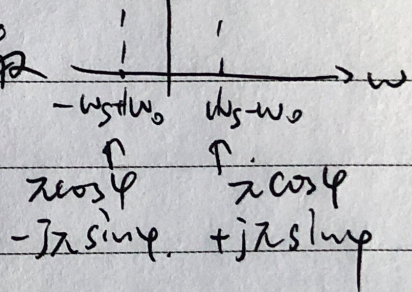 ω
-ωs+ω₀ ωs-ω₀
πcosφ πcosφ
-jπsinφ. +jπsinφ